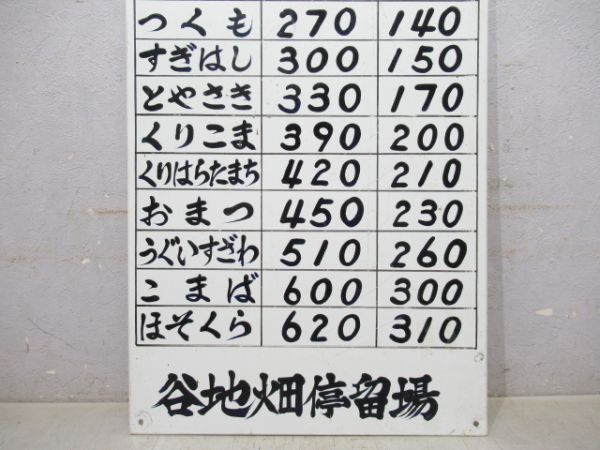 つくも 270 140
すぎはし 300 150
とやさき 330 170
くりこま 390 200
くりはらたまち 420 210
おまつ 450 230
うぐいすざわ 510 260
こまば 600 300
ほそくら 620 310
谷地畑停留場